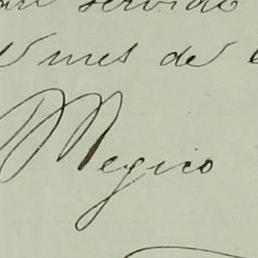 servido
mes de
Megico